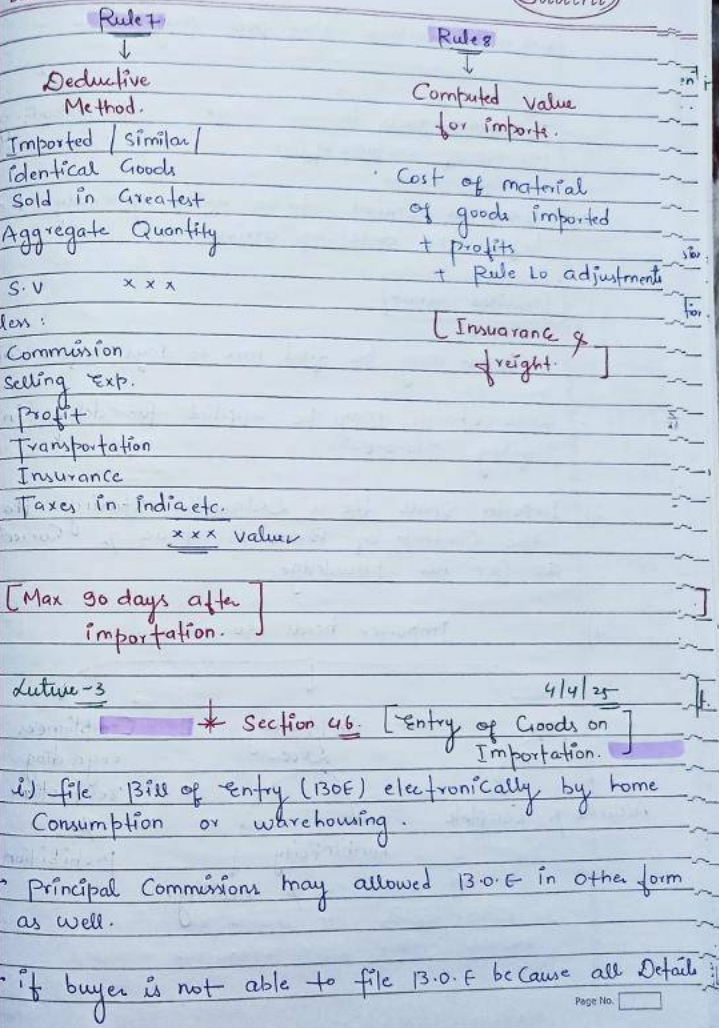 Rule 7
↓
Deductive
Method.
Imported / Similar /
identical Goods
Sold in Greatest
Aggregate Quantity
S.V x x x
less :
Commission
Selling Exp.
Profit
Transportation
Insurance
Taxes in india etc.
x x x value
[Max 90 days after
importation.]
Rule 8
↓
Computed value
for imports.
Cost of material
of goods imported
+ profits
+ Rule 10 adjustments
[Insuarance &
freight.]
Luture-3 4/4/25
* Section 46. [Entry of Goods on
Importation.]
i) file Bill of Entry (BOE) electronically by home
Consumption or warehousing.
Principal Commissions may allowed B.O.E in other form
as well.
if buyer is not able to file B.O.E because all Details
Page No.